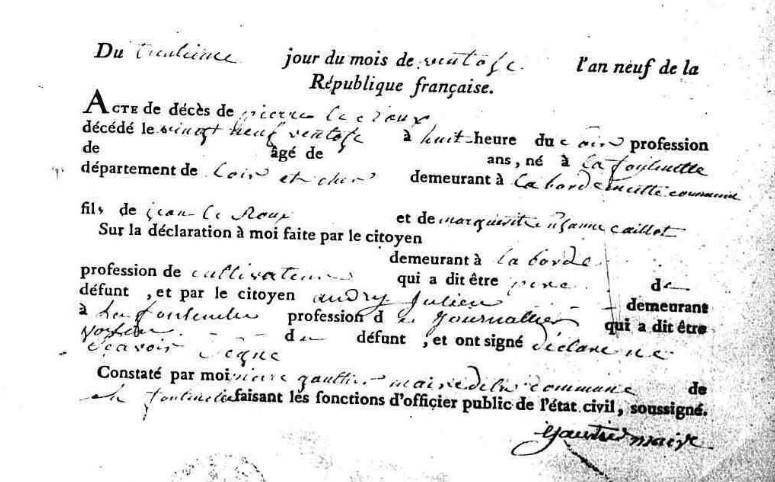 Du trentieme jour du mois de ventose l'an neuf de la
République française.
ACTE de décès de pierre le Roux
décédé le vingt neuf ventose à huit heure du soir profession
de âgé de ans, né à la fontenelle
département de Loir et cher demeurant à la borde cette commune
fils de jean le Roux et de marguerite caillot
Sur la déclaration à moi faite par le citoyen
demeurant à la borde
profession de cultivateur qui a dit être pere du
défunt , et par le citoyen audry julien demeurant
à la fontenelle profession de journallier qui a dit être
voisin du défunt , et ont signé declare ne
sçavoir signe
Constaté par moi gaultier maire de la commune de
la fontenelle faisant les fonctions d'officier public de l'état civil, soussigné.
gaultier maire